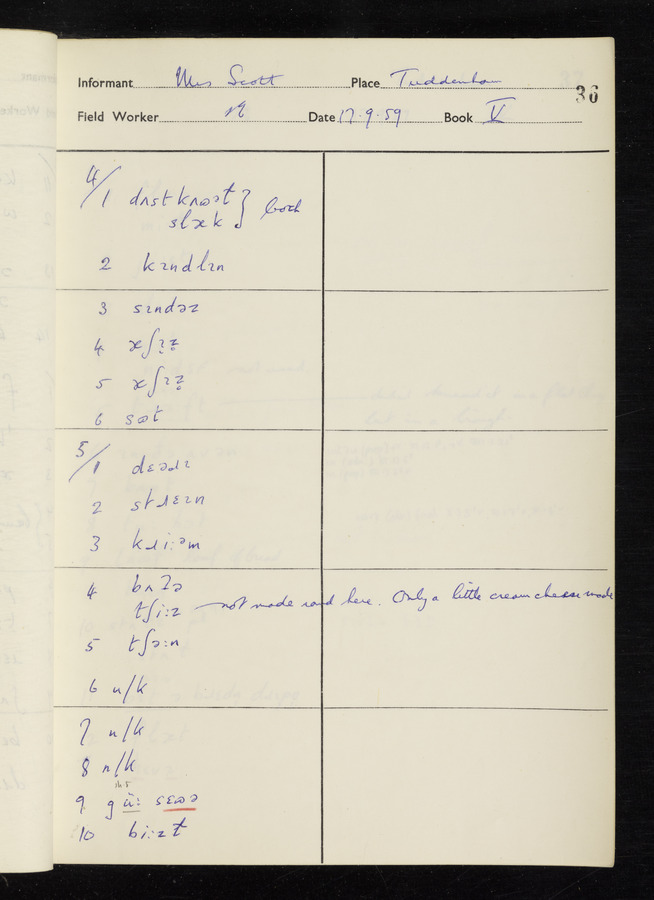 Informant Mrs Scott Place Tuddenham
36
Field Worker Date 17.9.59 Book V
4/1 dʌst kʌɷət } both
slæk
2 kɪndlɪn
3 sɪndəz
4 æʃɪz̥
5 æʃɪz̥
6 sɷt
5/1 dɛəɹɪ
2 stɹɛɪn
3 kɹi:əm
4 bʌʔə
tʃi:z — not made round here. Only a little cream cheese made
5 tʃə:n
6 n/k
7 n/k
8 n/k
9 g ü: sɛɷə
10 bi:ɪt